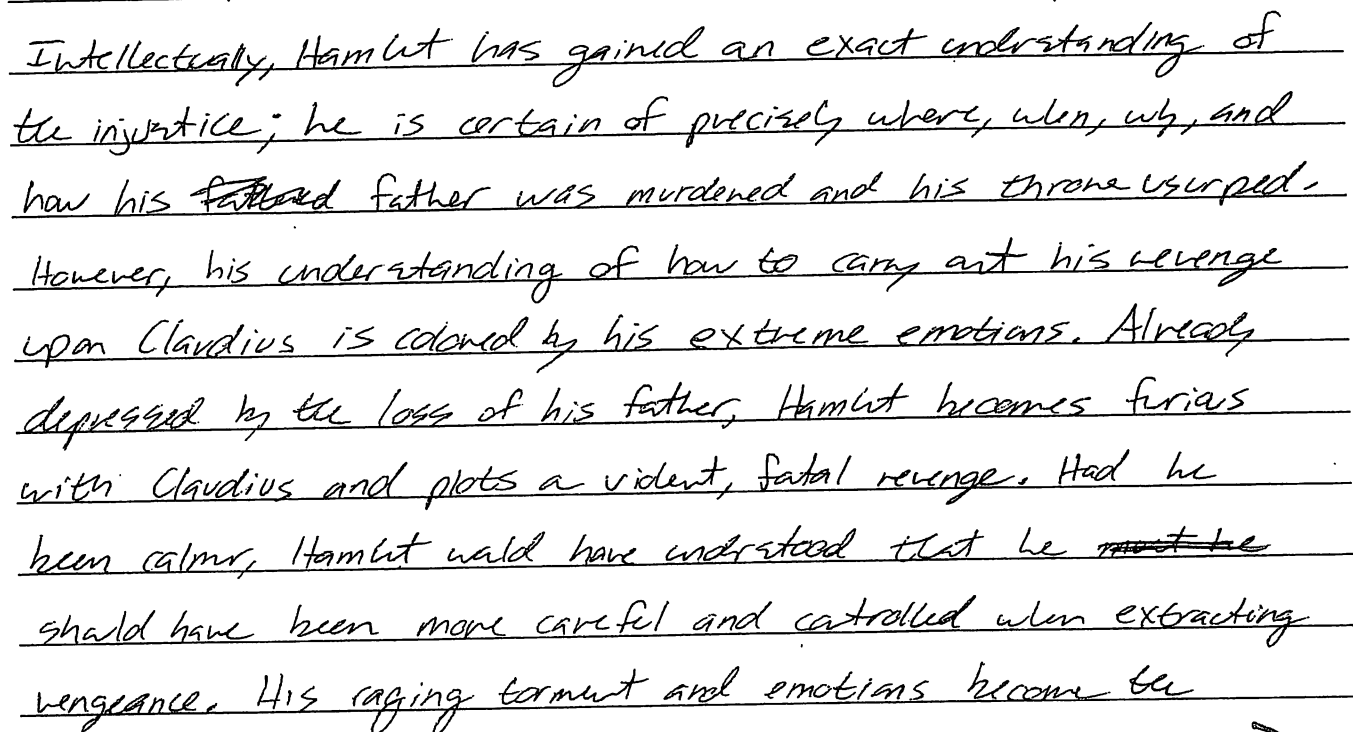 Intellectually, Hamlet has gained an exact understanding of
the injustice; he is certain of precisely where, when, why, and
how his father was murdered and his throne usurped.
However, his understanding of how to carry out his revenge
upon Claudius is colored by his extreme emotions. Already
depressed by the loss of his father, Hamlet becomes furious
with Claudius and plots a violent, fatal revenge. Had he
been calmer, Hamlet would have understood that he must be
should have been more careful and controlled when extracting
vengeance. His raging torment and emotions become the